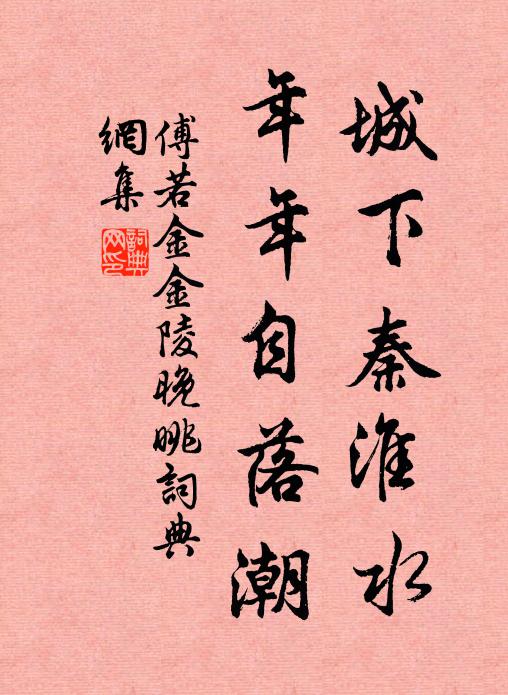 城下秦淮水
年年自落潮
傅若金金陵晚眺詞典
網集
詞典網印